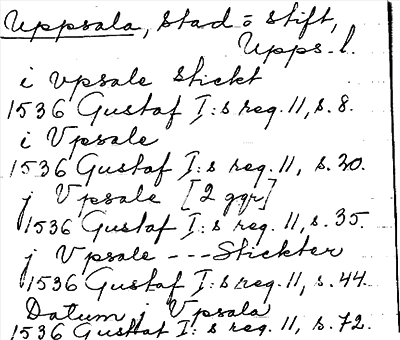 Uppsala, stad o stift,
Upps. l.
i vpsale stickt
1536 Gustaf I:s reg. 11, s. 8.
i Vpsale
1536 Gustaf I:s reg. 11, s. 30.
j Vpsale [2 ggr]
1536 Gustaf I:s reg. 11, s. 35.
j Vpsale --- Stickter
1536 Gustaf I:s reg. 11, s. 44.
Datum j Vpsala
1536 Gustaf I:s reg. 11, s. 72.